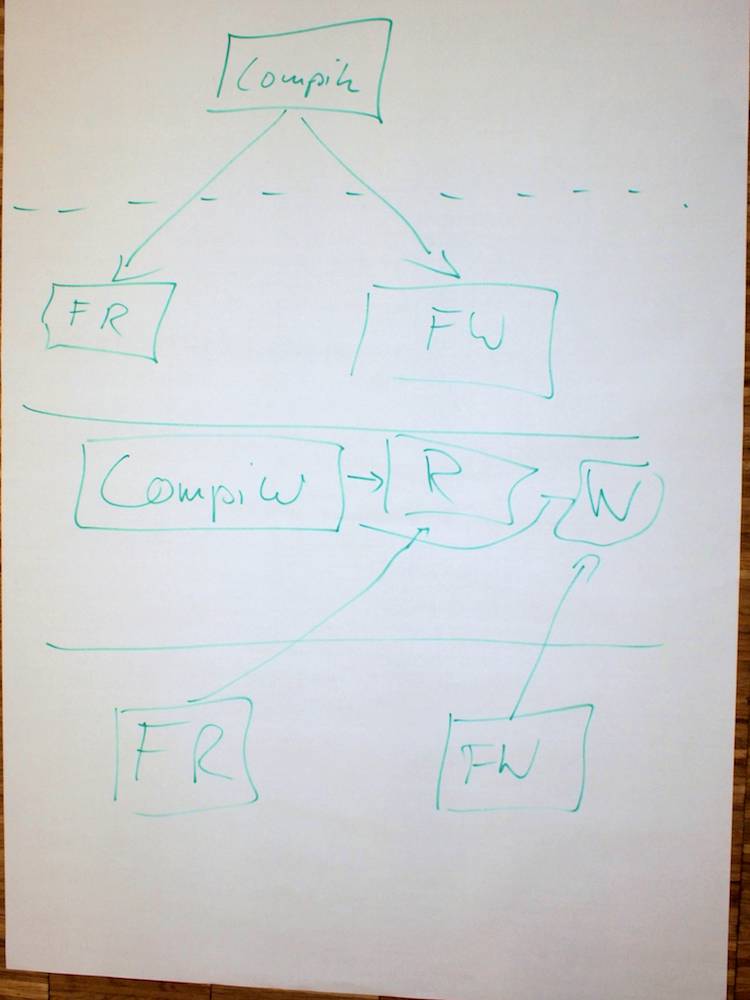 Compile
FR
FW
Compiler
R
W
FR
FW